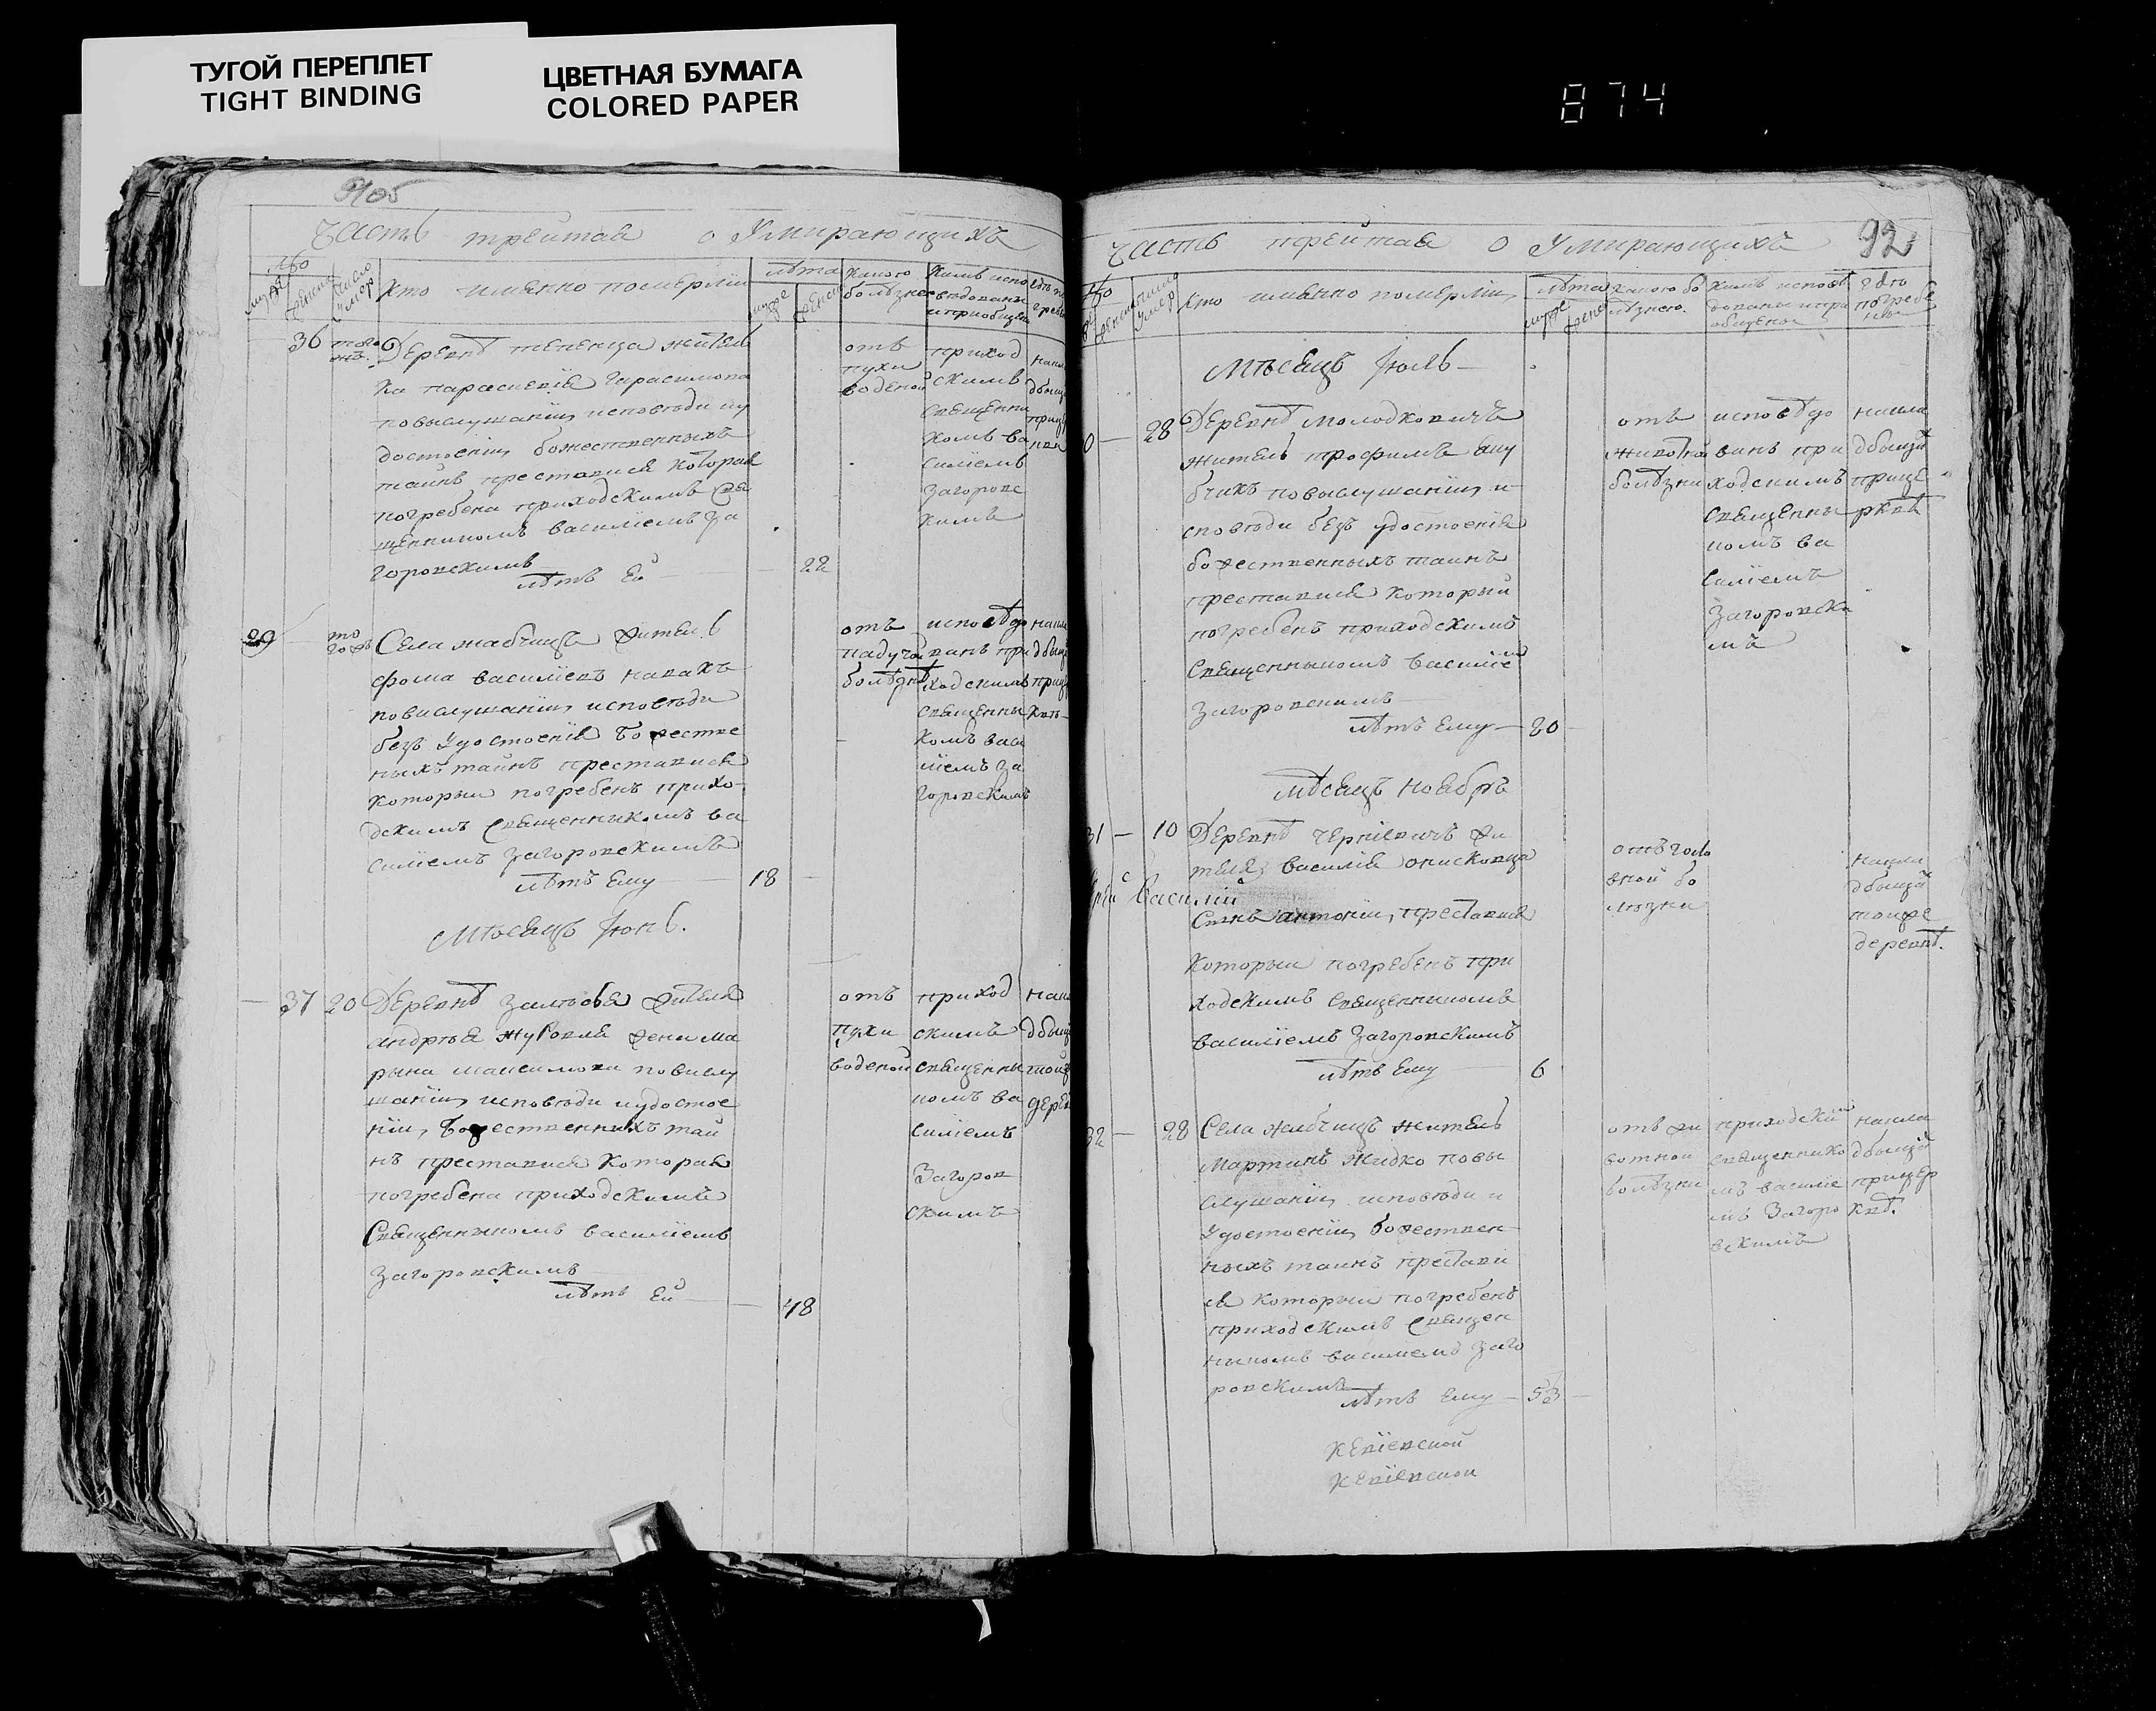 ТУГОЙ ПЕРЕПЛЕТ
TIGHT BINDING
ЦВЕТНАЯ БУМАГА
COLORED PAPER
874
Часть третая о Умирающихъ
Кто имянно померли
лѣта
Какого болѣзнею
36 того жъ
Деревнѣ тепенца жител
ка параскевія Гарасимова
повыслушаніи исповѣди иу
достоеніи божественныхъ
таинъ преставися которая
погребена приходскимъ свя
щенникомъ василіемъ За
горовскимъ
лѣтъ Ей 22
отъ
пухи
воденой
приход
скимъ
священни
комъ ва
силіемъ
Загоровс
кимъ
29
Села жабчицъ житель
фома василіевъ навахъ
повислушаніи исповѣди
безъ Удостоенія Божестве
ныхъ таинъ преставися
которыи погребенъ прихо
дскимъ священникомъ ва
силіемъ Загоровскимъ
лѣтъ Ему 18
отъ
падучой
болѣзнѣ
исповѣдо
ванъ при
ходскимъ
священны
комъ васи
ліемъ За
горовскимъ
Мѣсяцъ Іюнь.
37 20
Деревнѣ жителя
андрѣя жена ма
рына максимова повислу
шаніи исповѣди иудостое
ніи, Божественнихъ таи
нъ преставися Которая
погребена приходскимъ
Священныкомъ василіемъ
Загоровскимъ
лѣтъ Ей 48
отъ
пухи
воденой
приход
скимъ
священны
комъ ва
силіемъ
Загоров
скимъ
Часть третая о Умирающихъ
92
Кто имянно померли
лѣта
Какого бо
лѣзнею.
Кимъ исповѣ
дованы ипри
общены
гдѣ
погребе
ны
Мѣсяцъ Іюль
28 Деревнѣ Молодковичъ
житель трофимъ
повыслушаніи и
сповѣди безъ удостоенія
божественныхъ таинъ
преставися которыи
погребенъ приходскимъ
Священныкомъ василіемъ
Загоровскимъ
лѣтъ Ему 80
отъ
животной
болѣзни
исповѣдо
ванъ при
ходскимъ
священны
комъ ва
силіемъ
Загоровски
мъ
накла
дбищи
прице
рквѣ
Мѣсяцъ Ноябрь
31 10 Деревнѣ Черніевичъ жи
теля василія онисковца
Василій
Сынъ антоніи, преставися
Которыи погребенъ при
ходскимъ священныкомъ
василіемъ Загоровскимъ
лѣтъ Ему 6
отъ голо
вной бо
лѣзни
накла
дбищи
тоиже
деревнѣ.
32 28 Села жабчицъ житель
Мартинъ Жидко повы
слушаніи исповѣди и
Удостоеніи божествен
ныхъ таинъ престави
ся которыи погребенъ
приходскимъ священ
ныкомъ василіемъ Заго
ровскимъ
лѣтъ Ему 53
отъ жи
вотной
болѣзни
приходским
священнико
мъ василіе
мъ Загоро
вскимъ
накла
дбищи
прицер
квѣ.
Кевіевской
Кевіевской